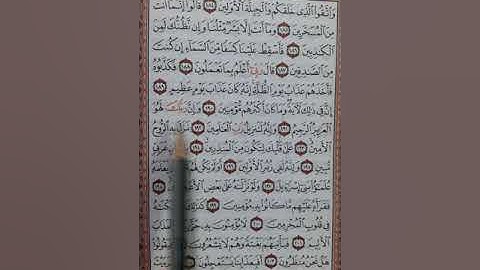 وَٱتَّقُوا۟ ٱلَّذِى خَلَقَكُمْ وَٱلْجِبِلَّةَ ٱلْأَوَّلِينَ ١٨٤ قَالُوٓا۟ إِنَّمَآ أَنتَ
مِنَ ٱلْمُسَحَّرِينَ ١٨٥ وَمَآ أَنتَ إِلَّا بَشَرٌ مِّثْلُنَا وَإِن نَّظُنُّكَ لَمِنَ
ٱلْكَـٰذِبِينَ ١٨٦ فَأَسْقِطْ عَلَيْنَا كِسَفًا مِّنَ ٱلسَّمَآءِ إِن كُنتَ
مِنَ ٱلصَّـٰدِقِينَ ١٨٧ قَالَ رَبِّىٓ أَعْلَمُ بِمَا تَعْمَلُونَ ١٨٨ فَكَذَّبُوهُ
فَأَخَذَهُمْ عَذَابُ يَوْمِ ٱلظُّلَّةِ إِنَّهُۥ كَانَ عَذَابَ يَوْمٍ عَظِيمٍ ١٨٩
إِنَّ فِى ذَٰلِكَ لَـَٔايَةً وَمَا كَانَ أَكْثَرُهُم مُّؤْمِنِينَ ١٩٠ وَإِنَّ رَبَّكَ لَهُوَ
ٱلْعَزِيزُ ٱلرَّحِيمُ ١٩١ وَإِنَّهُۥ لَتَنزِيلُ رَبِّ ٱلْعَـٰلَمِينَ ١٩٢ نَزَلَ بِهِ ٱلرُّوحُ
ٱلْأَمِينُ ١٩٣ عَلَىٰ قَلْبِكَ لِتَكُونَ مِنَ ٱلْمُنذِرِينَ ١٩٤ عَرَبِىٍّ
١٩٥ وَإِنَّهُۥ لَفِى زُبُرِ ٱلْأَوَّلِينَ ١٩٦ أَوَلَمْ يَكُن لَّهُمْ يَعْلَمَهُۥ
عُلَمَـٰٓؤُا۟ بَنِىٓ إِسْرَٰٓءِيلَ ١٩٧ وَلَوْ نَزَّلْنَـٰهُ عَلَىٰ بَعْضِ ٱلْأَعْجَمِينَ ١٩٨
فَقَرَأَهُۥ عَلَيْهِم مَّا كَانُوا۟ بِهِۦ مُؤْمِنِينَ ١٩٩ كَذَٰلِكَ سَلَكْنَـٰهُ
فِى قُلُوبِ ٱلْمُجْرِمِينَ ٢٠٠ لَا يُؤْمِنُونَ بِهِۦ حَتَّىٰ ٱلْعَذَابَ
ٱلْأَلِيمَ ٢٠١ فَيَأْتِيَهُم بَغْتَةً وَهُمْ لَا يَشْعُرُونَ ٢٠٢
هَلْ نَحْنُ مُنظَرُونَ ٢٠٣ أَفَبِعَذَابِنَا يَسْتَعْجِلُونَ ٢٠٤ أَفَرَءَيْتَ